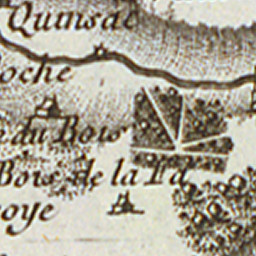 Quinsac
oche
du Bois
Bois de la Fa
oye